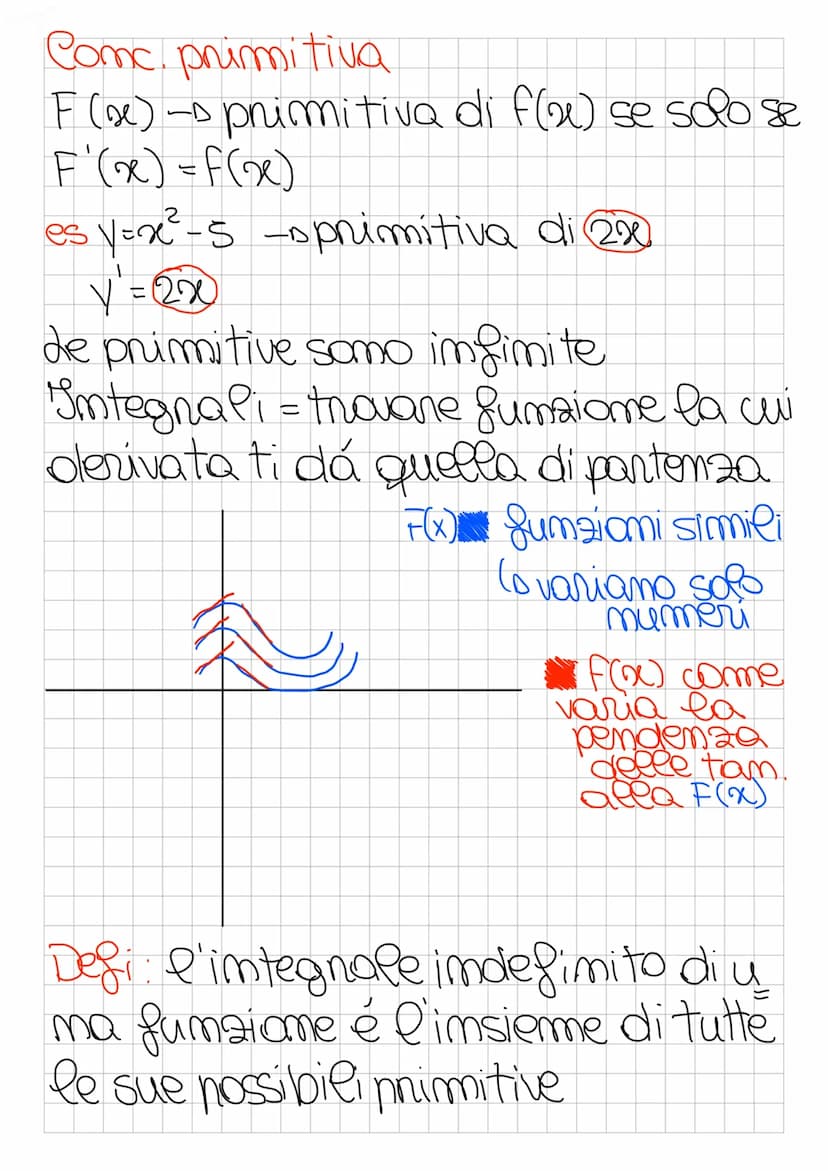 Conc. primitiva
F(x) → primitiva di f(x) se solo se
F'(x) = f(x)
es y=x²-5 → primitiva di 2x
y' = 2x
Le primitive sono infinite
Integrali = trovare funzione la cui
derivata ti dá quella di partenza
F(x) funzioni simili
↳ variano solo
numeri
f(x) come
varia la
pendenza
delle tan.
alla F(x)
Defi: l'integrale indefinito di u
na funzione é l'insieme di tutte
le sue possibili primitive